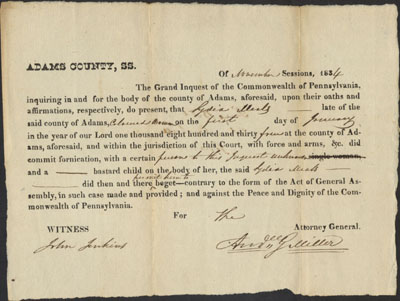 ADAMS COUNTY, SS.
Of November Sessions, 1834
The Grand Inquest of the Commonwealth of Pennsylvania,
inquiring in and for the body of the county of Adams, aforesaid, upon their oaths and
affirmations, respectively, do present, that Lydia Meels late of the
said county of Adams, on the first day of January
in the year of our Lord one thousand eight hundred and thirty four at the county of Ad-
ams, aforesaid, and within the jurisdiction of this Court, with force and arms, &c. did
commit fornication, with a certain person to this Inquest unknown single woman,
and a bastard child on the body of her, the said Lydia Meels
did then and there beget—contrary to the form of the Act of General As-
sembly, in such case made and provided; and against the Peace and Dignity of the Com-
monwealth of Pennsylvania.
For the
WITNESS
Attorney General.
John Jenkins
Miller